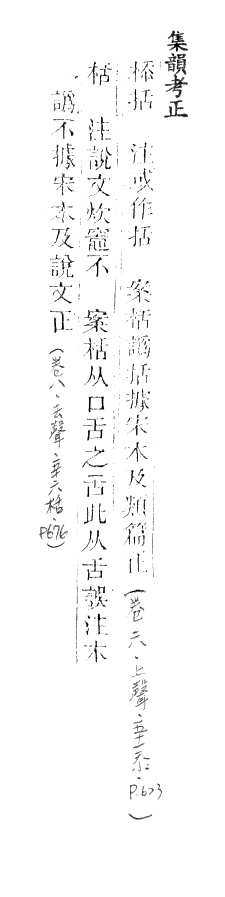 集韻考正
㮇括 注或作括 案栝譌括據宋本及類篇正(卷六·上聲·五十一忝·P.623)
栝 注說文炊竈不 案栝从口舌之𠯑此从舌誤注木
譌不據宋本及說文正(卷八·去聲·五十六㮇·P.676)